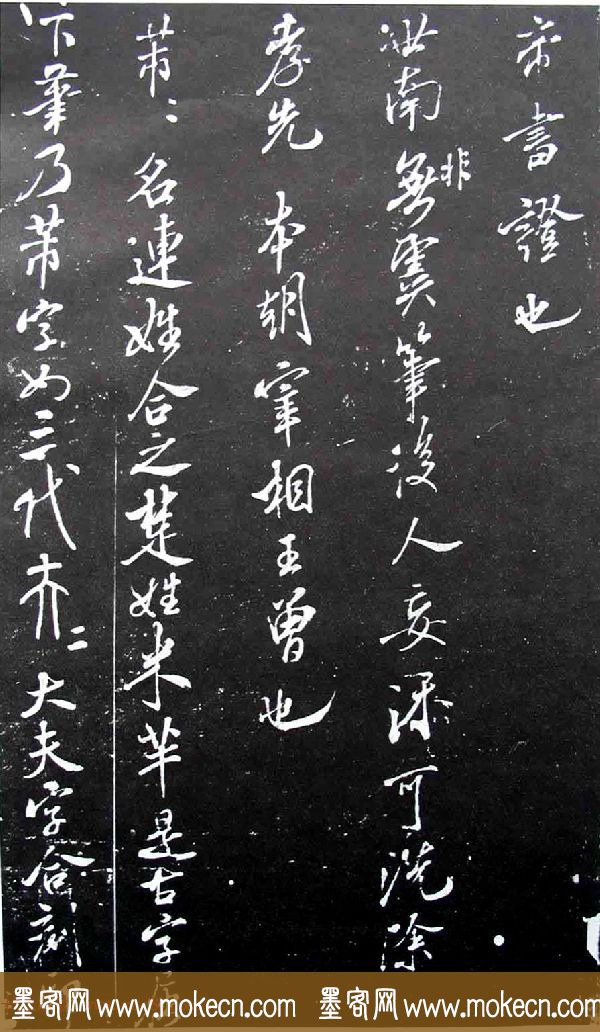 書證也
世南無非虞筆後人妄添可洗除
孝先 本朝宰相王曾也
芾〻名連姓合之楚姓米芈是古字屈
下筆乃芾字如三代〻大夫字合刻印
墨客网 www.mokecn.com 墨客网 www.mokecn.com